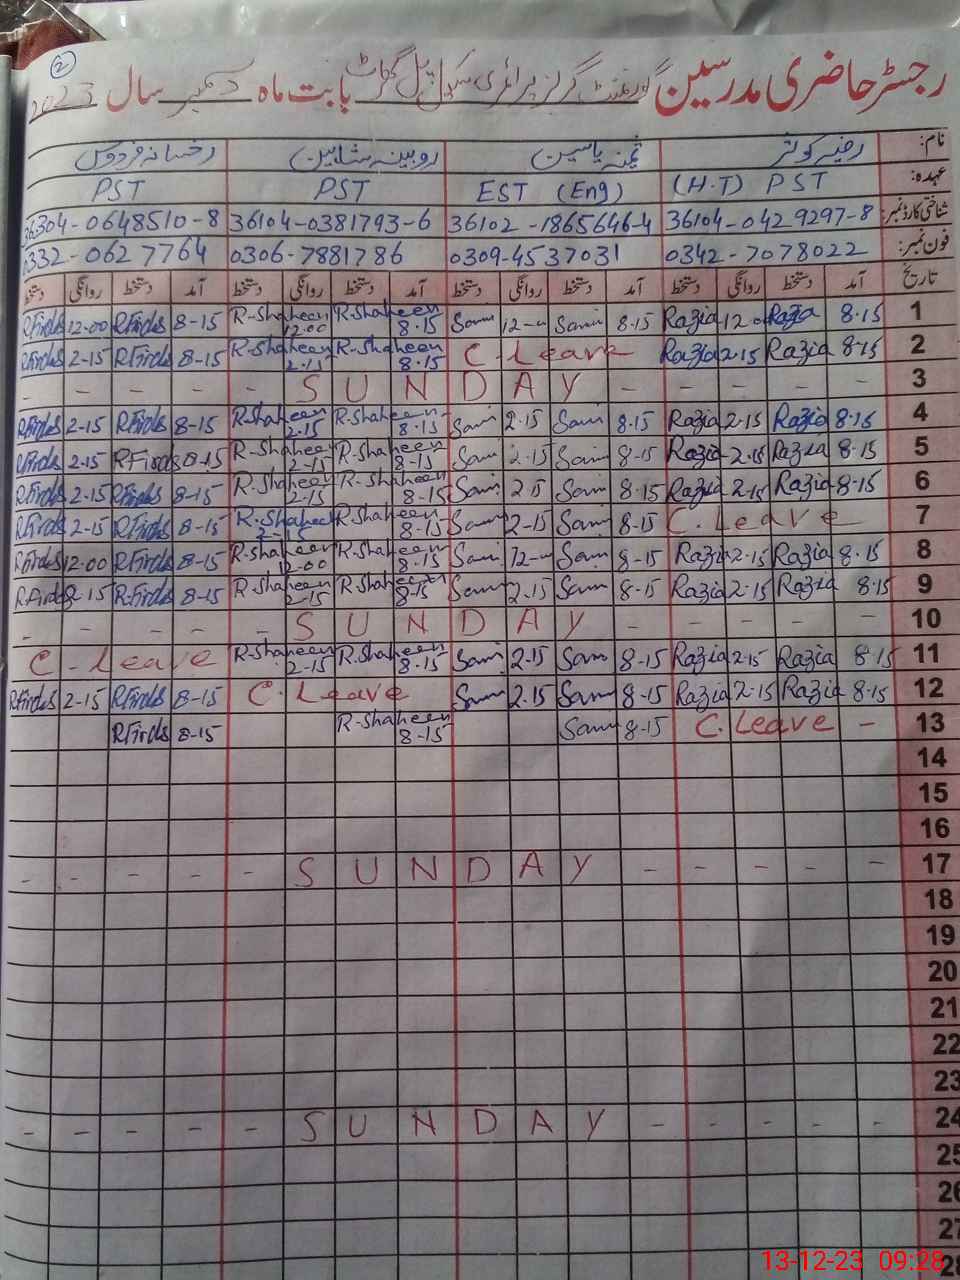 2
رجسٹر حاضری مدرسین گورنمنٹ گرلز پرائمری سکول پل گھاٹ بابت ماہ دسمبر سال 2023
نام: رضیہ کوثر ثمینہ یاسین روبینہ شاہین رخسانہ فردوس
عہدہ: (H.T) PST EST (Eng) PST PST
شناختی کارڈ نمبر: 36104-0429297-8 36102-1865646-4 36104-0381793-6 36304-0648510-8
فون نمبر: 0342-7078022 0309-4537031 0306-7881786 0332-0627764
تاریخ آمد دستخط روانگی دستخط آمد دستخط روانگی دستخط آمد دستخط روانگی دستخط آمد دستخط روانگی دستخط
1 8.15 Razia 12 Razia 8.15 Sam 12 Sam 8.15 R-Shaheen 12.00 R-Shaheen 8-15 RFirds 12.00 RFirds
2 8.15 Razia 2.15 Razia C. Leave 8.15 R-Shaheen 2.15 R-Shaheen 8-15 RFirds 2-15 RFirds
3 - - - - S U N D A Y - - - - -
4 8.15 Razia 2.15 Razia 8.15 Sam 2.15 Sam 8.15 R-Shaheen 2.15 R-Shaheen 8-15 RFirds 2-15 RFirds
5 8.15 Razia 2.15 Razia 8-15 Sam 2.15 Sam 8-15 R-Shaheen 2-15 R-Shaheen 8-15 RFirds 2-15 RFirds
6 8-15 Razia 2.15 Razia 8.15 Sam 2.15 Sam 8-15 R-Shaheen 2-15 R-Shaheen 8-15 RFirds 2-15 RFirds
7 C. Leave - 8-15 Sam 2-15 Sam 8-15 R-Shaheen 2-15 R-Shaheen 8-15 RFirds 2-15 RFirds
8 8.15 Razia 2.15 Razia 8-15 Sam 12 Sam 8.15 R-Shaheen 12-00 R-Shaheen 8-15 RFirds 12.00 RFirds
9 8.15 Razia 2.15 Razia 8-15 Sam 2.15 Sam 8-15 R-Shaheen 2-15 R-Shaheen 8-15 RFirds 2-15 RFirds
10 - - - - S U N D A Y - - - - -
11 8.15 Razia 2.15 Razia 8-15 Sam 2.15 Sam 8-15 R-Shaheen 2-15 R-Shaheen C - Leave
12 8.15 Razia 2.15 Razia 8-15 Sam 2.15 Sam C. Leave 8-15 RFirds 2-15 RFirds
13 C. Leave - 8-15 Sam 8-15 R-Shaheen 8-15 RFirds
14
15
16
17 - - - - - S U N D A Y - - - - -
18
19
20
21
22
23
24 - - - - - S U N D A Y - - - - -
25
26
27
28
13-12-23 09:28